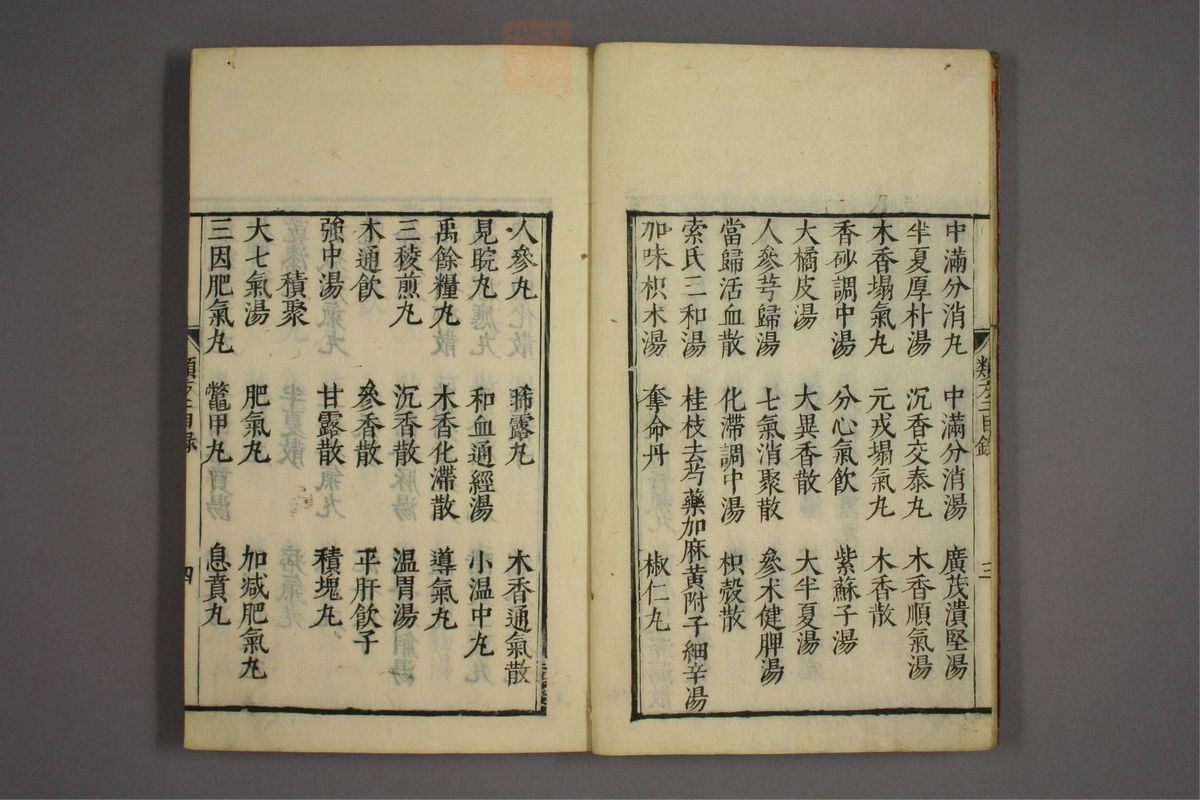 中滿分消丸 中滿分消湯 廣茂潰堅湯
半夏厚朴湯 沉香交泰丸 木香順氣湯
木香塌氣丸 元戎塌氣丸 木香散
香砂調中湯 分心氣飲 紫蘇子湯
大橘皮湯 大異香散 大半夏湯
人參芎歸湯 七氣消聚散 參朮健脾湯
當歸活血散 化滯調中湯 枳殼散
索氏三和湯 桂枝去芍藥加麻黃附子細辛湯
加味枳朮湯 奪命丹 椒仁丸
類方二目錄 三
人參丸 稀露丸 木香通氣散
見晛丸 和血通經湯 小溫中丸
禹餘糧丸 木香化滯散 導氣丸
三稜煎丸 沉香散 溫胃湯
木通飲 參香散 平肝飲子
強中湯 甘露散 積塊丸
積聚
大七氣湯 肥氣丸 加減肥氣丸
三因肥氣丸 鱉甲丸 息賁丸
類方二目錄 四